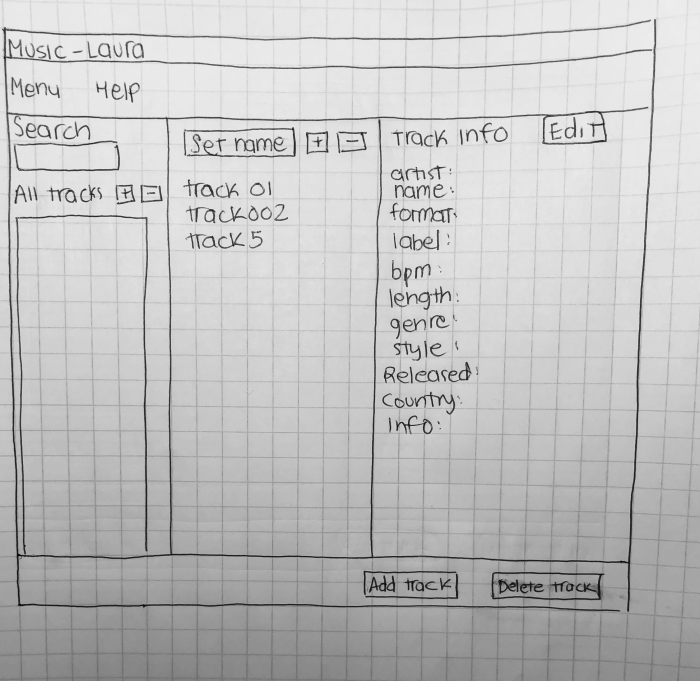 Music - Laura
Menu Help
Search
All tracks + -
Set name + -
track 01
track002
track 5
track info Edit
artist:
name:
format:
label:
bpm:
length:
genre:
style:
Released:
Country:
Info:
Add track Delete track